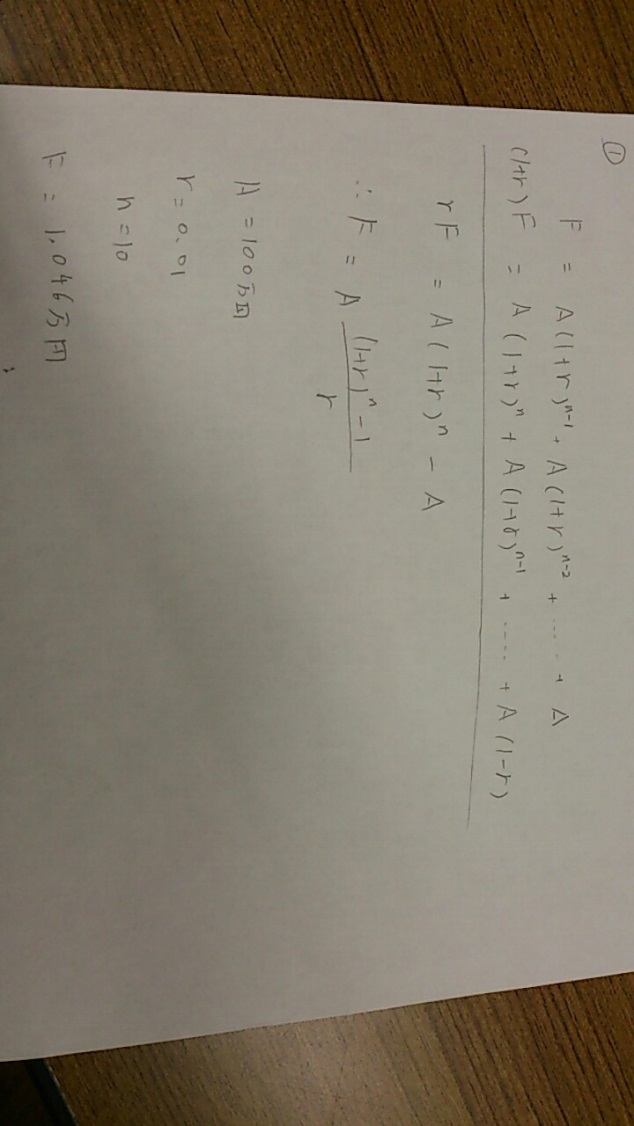 ①
F = A(1+r)^{n-1} + A(1+r)^{n-2} + ‥‥ + A
(1+r)F = A(1+r)^n + A(1+r)^{n-1} + ‥‥ + A(1-r)
rF = A(1+r)^n - A
∴ F = A \frac{(1+r)^n - 1}{r}
A = 100万円
r = 0.01
n = 10
F = 1,046万円